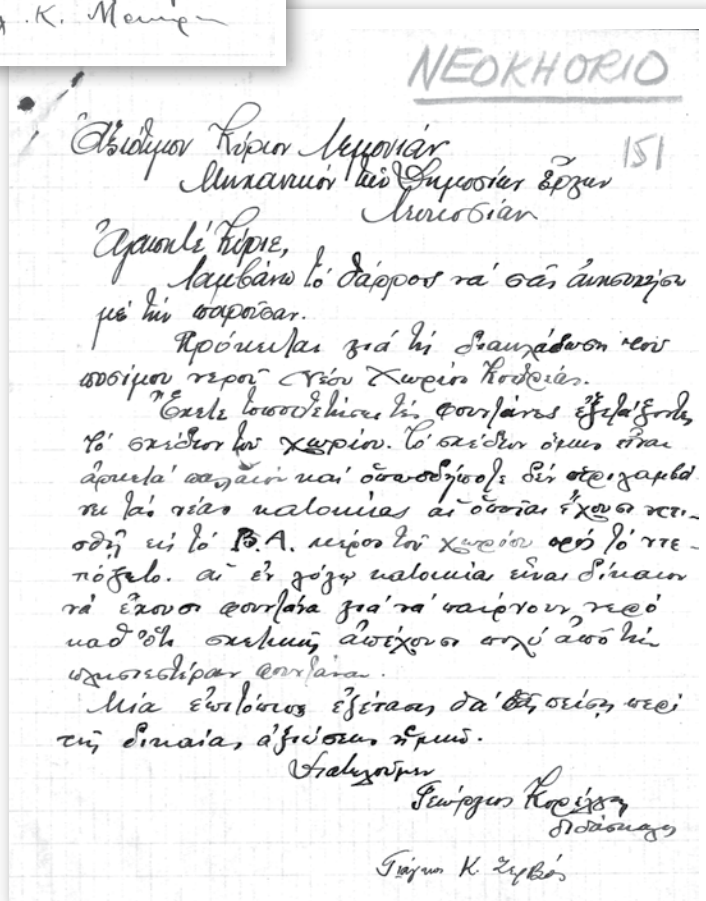 Κ.
ΝΕΟΚΗΟRΙΟ
151
Ἀξιότιμον Κύριον Λεμονιάν
Μηχανικόν τῶν Δημοσίων Ἔργων
Λευκωσίαν
Ἀγαπητέ Κύριε,
Λαμβάνω τό θάρρος νά σᾶς ἐνοχλήσω
μέ τήν παροῦσαν.
Πρόκειται γιά τή διακλάδωση τοῦ
ποσίμου νεροῦ Νέου Χωρίου Κυθρέας.
Ἔχετε τοποθετήσει τές φουντάνες ἐξετάζοντες
τό σχέδιον τοῦ χωρίου. Τό σχέδιον ὅμως εἶναι
ἀρκετά παλαιόν καί ὁπωσδήποτε δέν περιλαμβά
νει τάς νέας κατοικίας αἱ ὁποῖαι ἔχουσι κτι-
σθῆ εἰς τό Β.Α. μέρος τοῦ χωρίου πρός τό ντε-
πόζιτο. αἱ ἐν λόγῳ κατοικίαι εἶναι δίκαιον
νά ἔχουσι φουντάνα γιά νά παίρνουν νερό
καθ' ὅτι σχετικῶς ἀπέχουσι πολύ ἀπό τήν
πλησιεστέραν φουντάνα.
Μία ἐπιτόπιος ἐξέτασις θά σᾶς πείση περί
τῆς δικαίας ἀξιώσεως ἡμῶν.
Διατελοῦμεν
Γεώργιος
διδάσκαλος
Γιάγκος Κ. Ζερβός